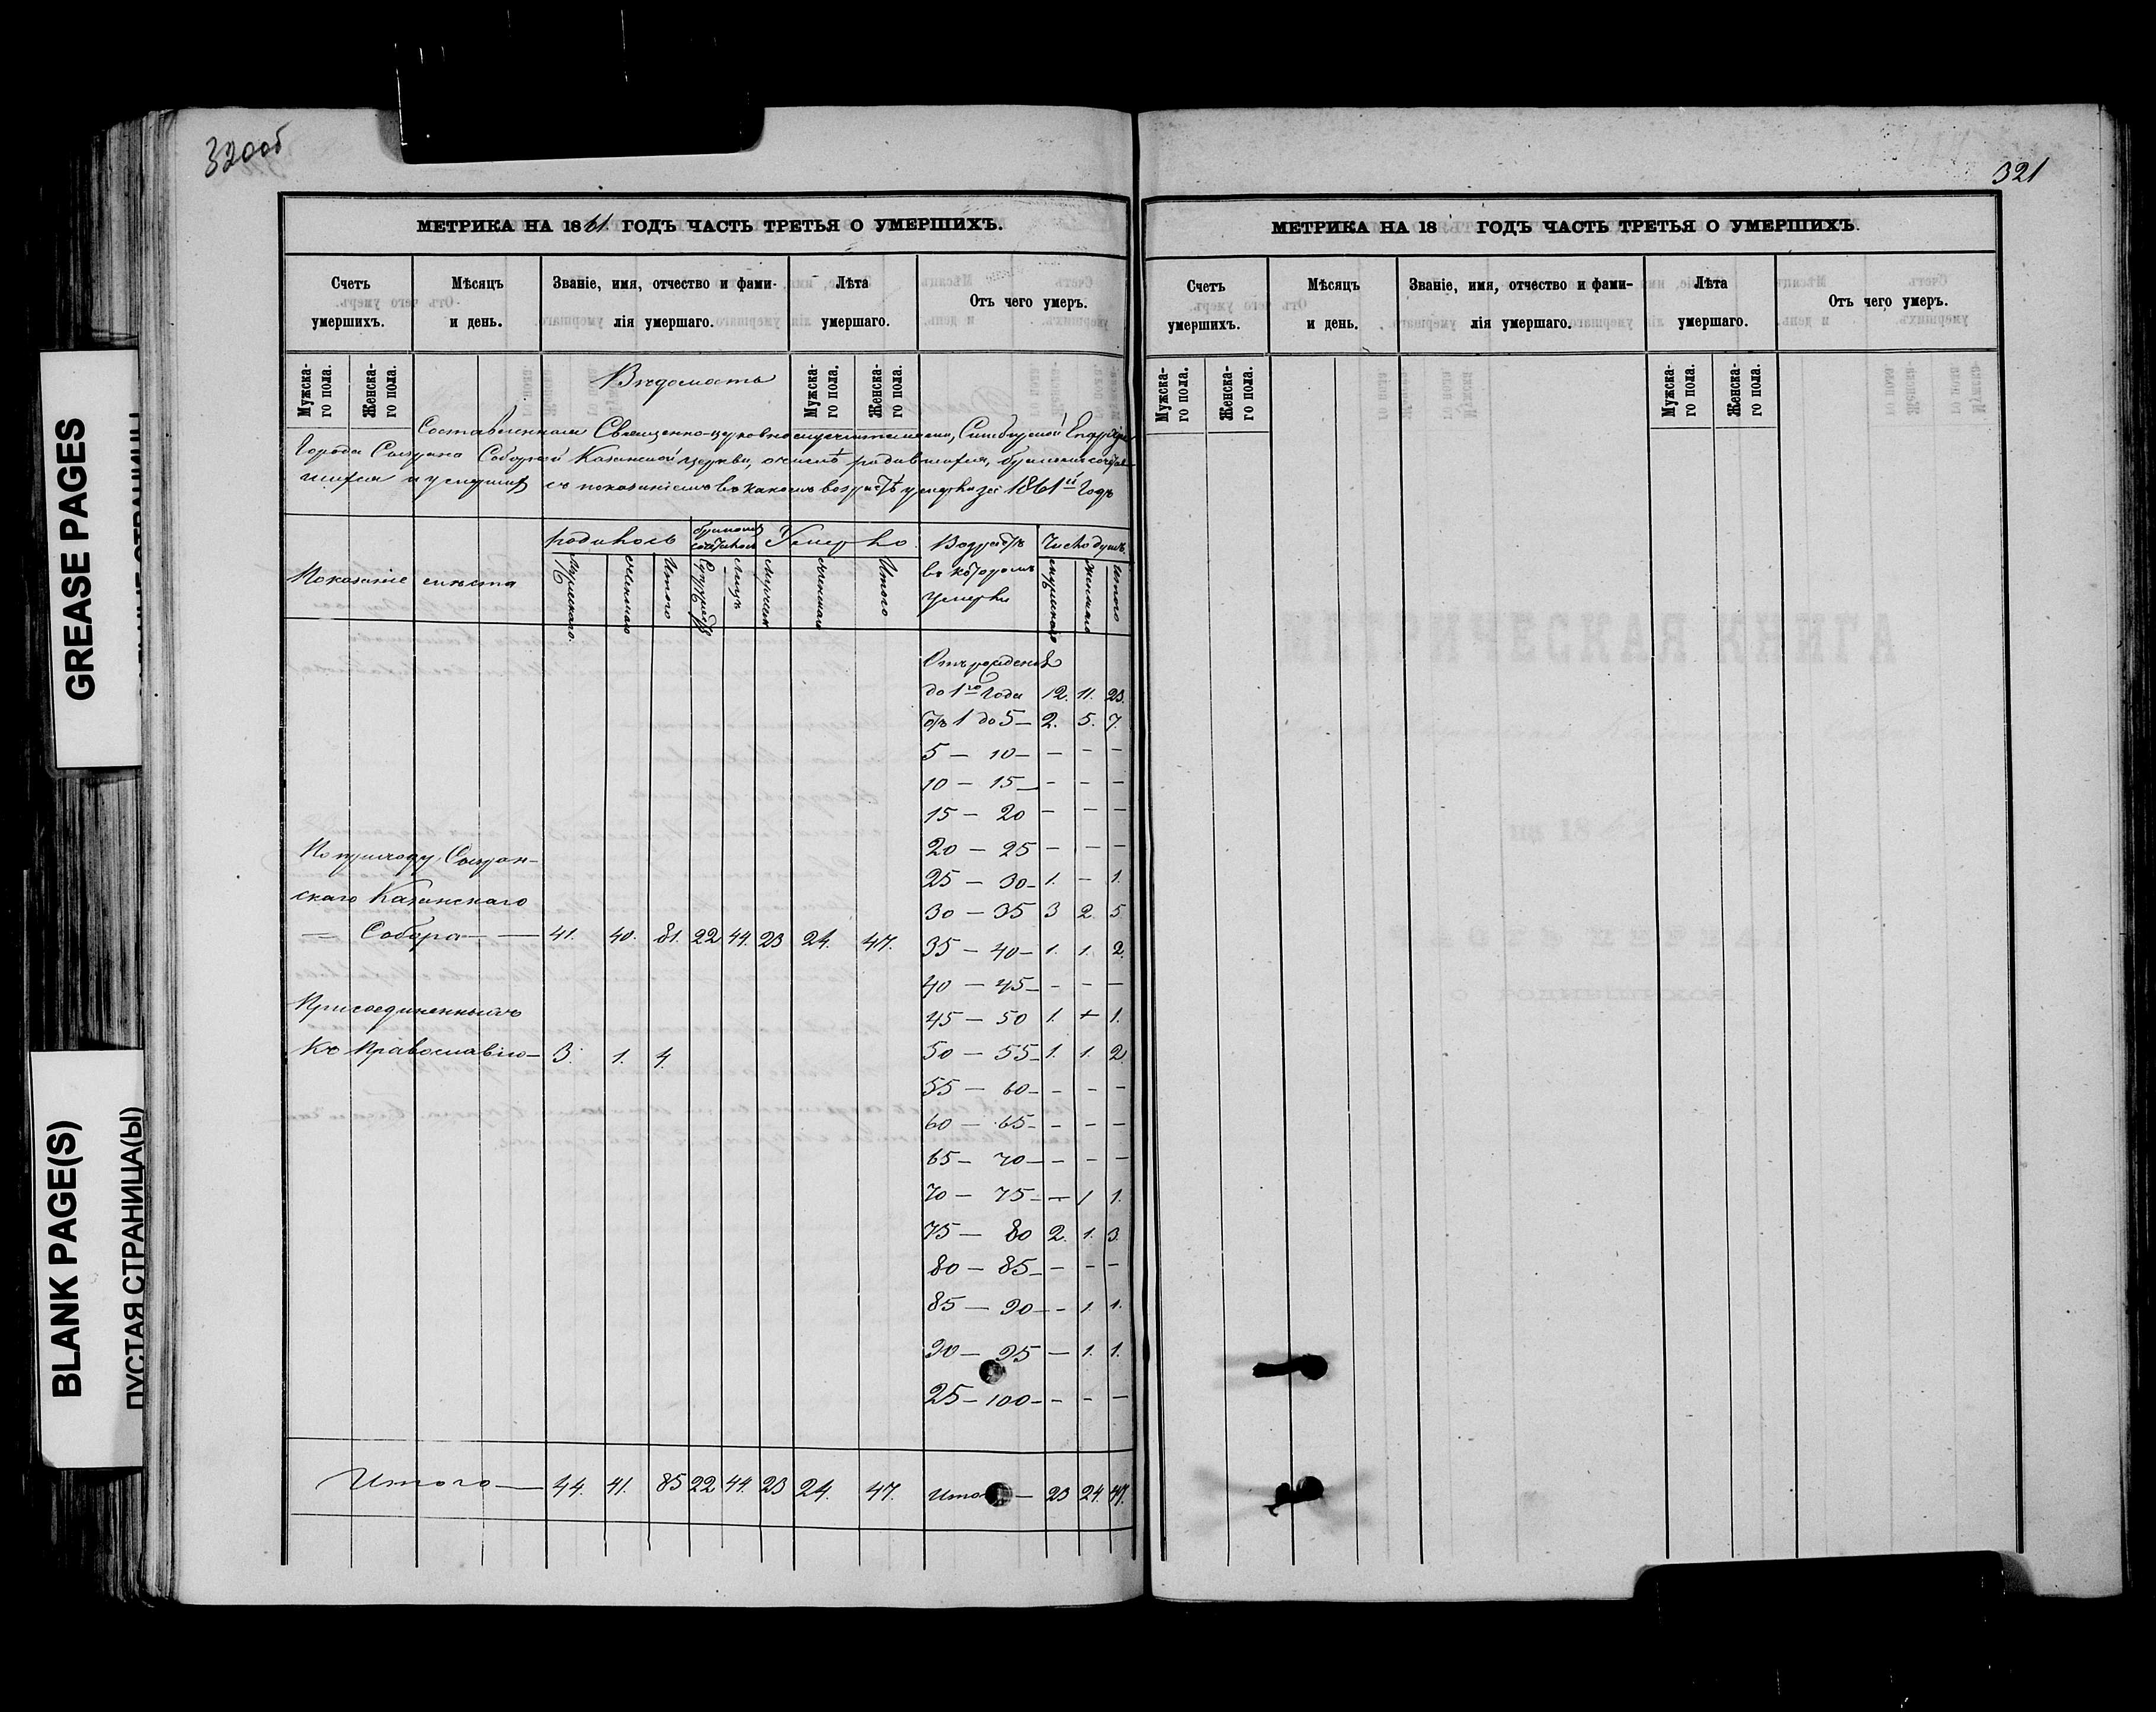 320об
МЕТРИКА НА 1861 ГОДЪ ЧАСТЬ ТРЕТЬЯ О УМЕРШИХЪ.
Счетъ умершихъ. Мѣсяцъ и день. Званіе, имя, отчество и фами-лія умершаго. Лѣта умершаго. Отъ чего умеръ.
Мужска-го пола. Женска-го пола. Мужска-го пола. Женска-го пола.
Вѣдомость
Составленная Священно-церковнослужителями, Симбирской Епархіи
Города Сызрана Соборной Казанской церкви, о числѣ родившихся, бракомъ сочетав-
шихся и умершихъ съ показаніемъ въ какомъ возрастѣ умерли за 1861й Годъ
Показаніе мѣста
родилось бракомъ сочеталось Умерло Возрастъ въ которомъ умерли Число душъ
Мужескаго. Женскаго Итого Супружествъ Лицъ Мужескаго Женскаго Итого Мужескаго Женскаго Итого
Отъ рожденія
до 1го Года 12. 11. 23.
Отъ 1 до 5 — 2. 5. 7.
5 — 10 — — — —
10 — 15 — — — —
15 — 20 — — —
20 — 25 — — —
25 — 30 — 1. — 1.
30 — 35 3 2. 5.
35 — 40 — 1. 1. 2.
40 — 45 — — — —
45 — 50 1. — 1.
50 — 55 — 1. 1. 2.
55 — 60 — — — —
60 — 65 — — — —
65 — 70 — — — —
70 — 75 — — 1 1.
75 — 80 2. 1. 3.
80 — 85 — — — —
85 — 90 — — 1. 1.
90 — 95 — 1. 1.
95 — 100 — — — —
По приходу Сызран-
скаго Казанскаго
— Собора — — 41. 40. 81. 22 44. 23 24. 47.
Присоединенныхъ
Къ Православію — 3. 1. 4.
Итого — 44. 41. 85 22 44. 23 24. 47. Итого — 23 24. 47.
321
МЕТРИКА НА 18 ГОДЪ ЧАСТЬ ТРЕТЬЯ О УМЕРШИХЪ.
Счетъ умершихъ. Мѣсяцъ и день. Званіе, имя, отчество и фами-лія умершаго. Лѣта умершаго. Отъ чего умеръ.
Мужска-го пола. Женска-го пола. Мужска-го пола. Женска-го пола.
GREASE PAGES
BLANK PAGE(S)
ПУСТАЯ СТРАНИЦА(Ы)